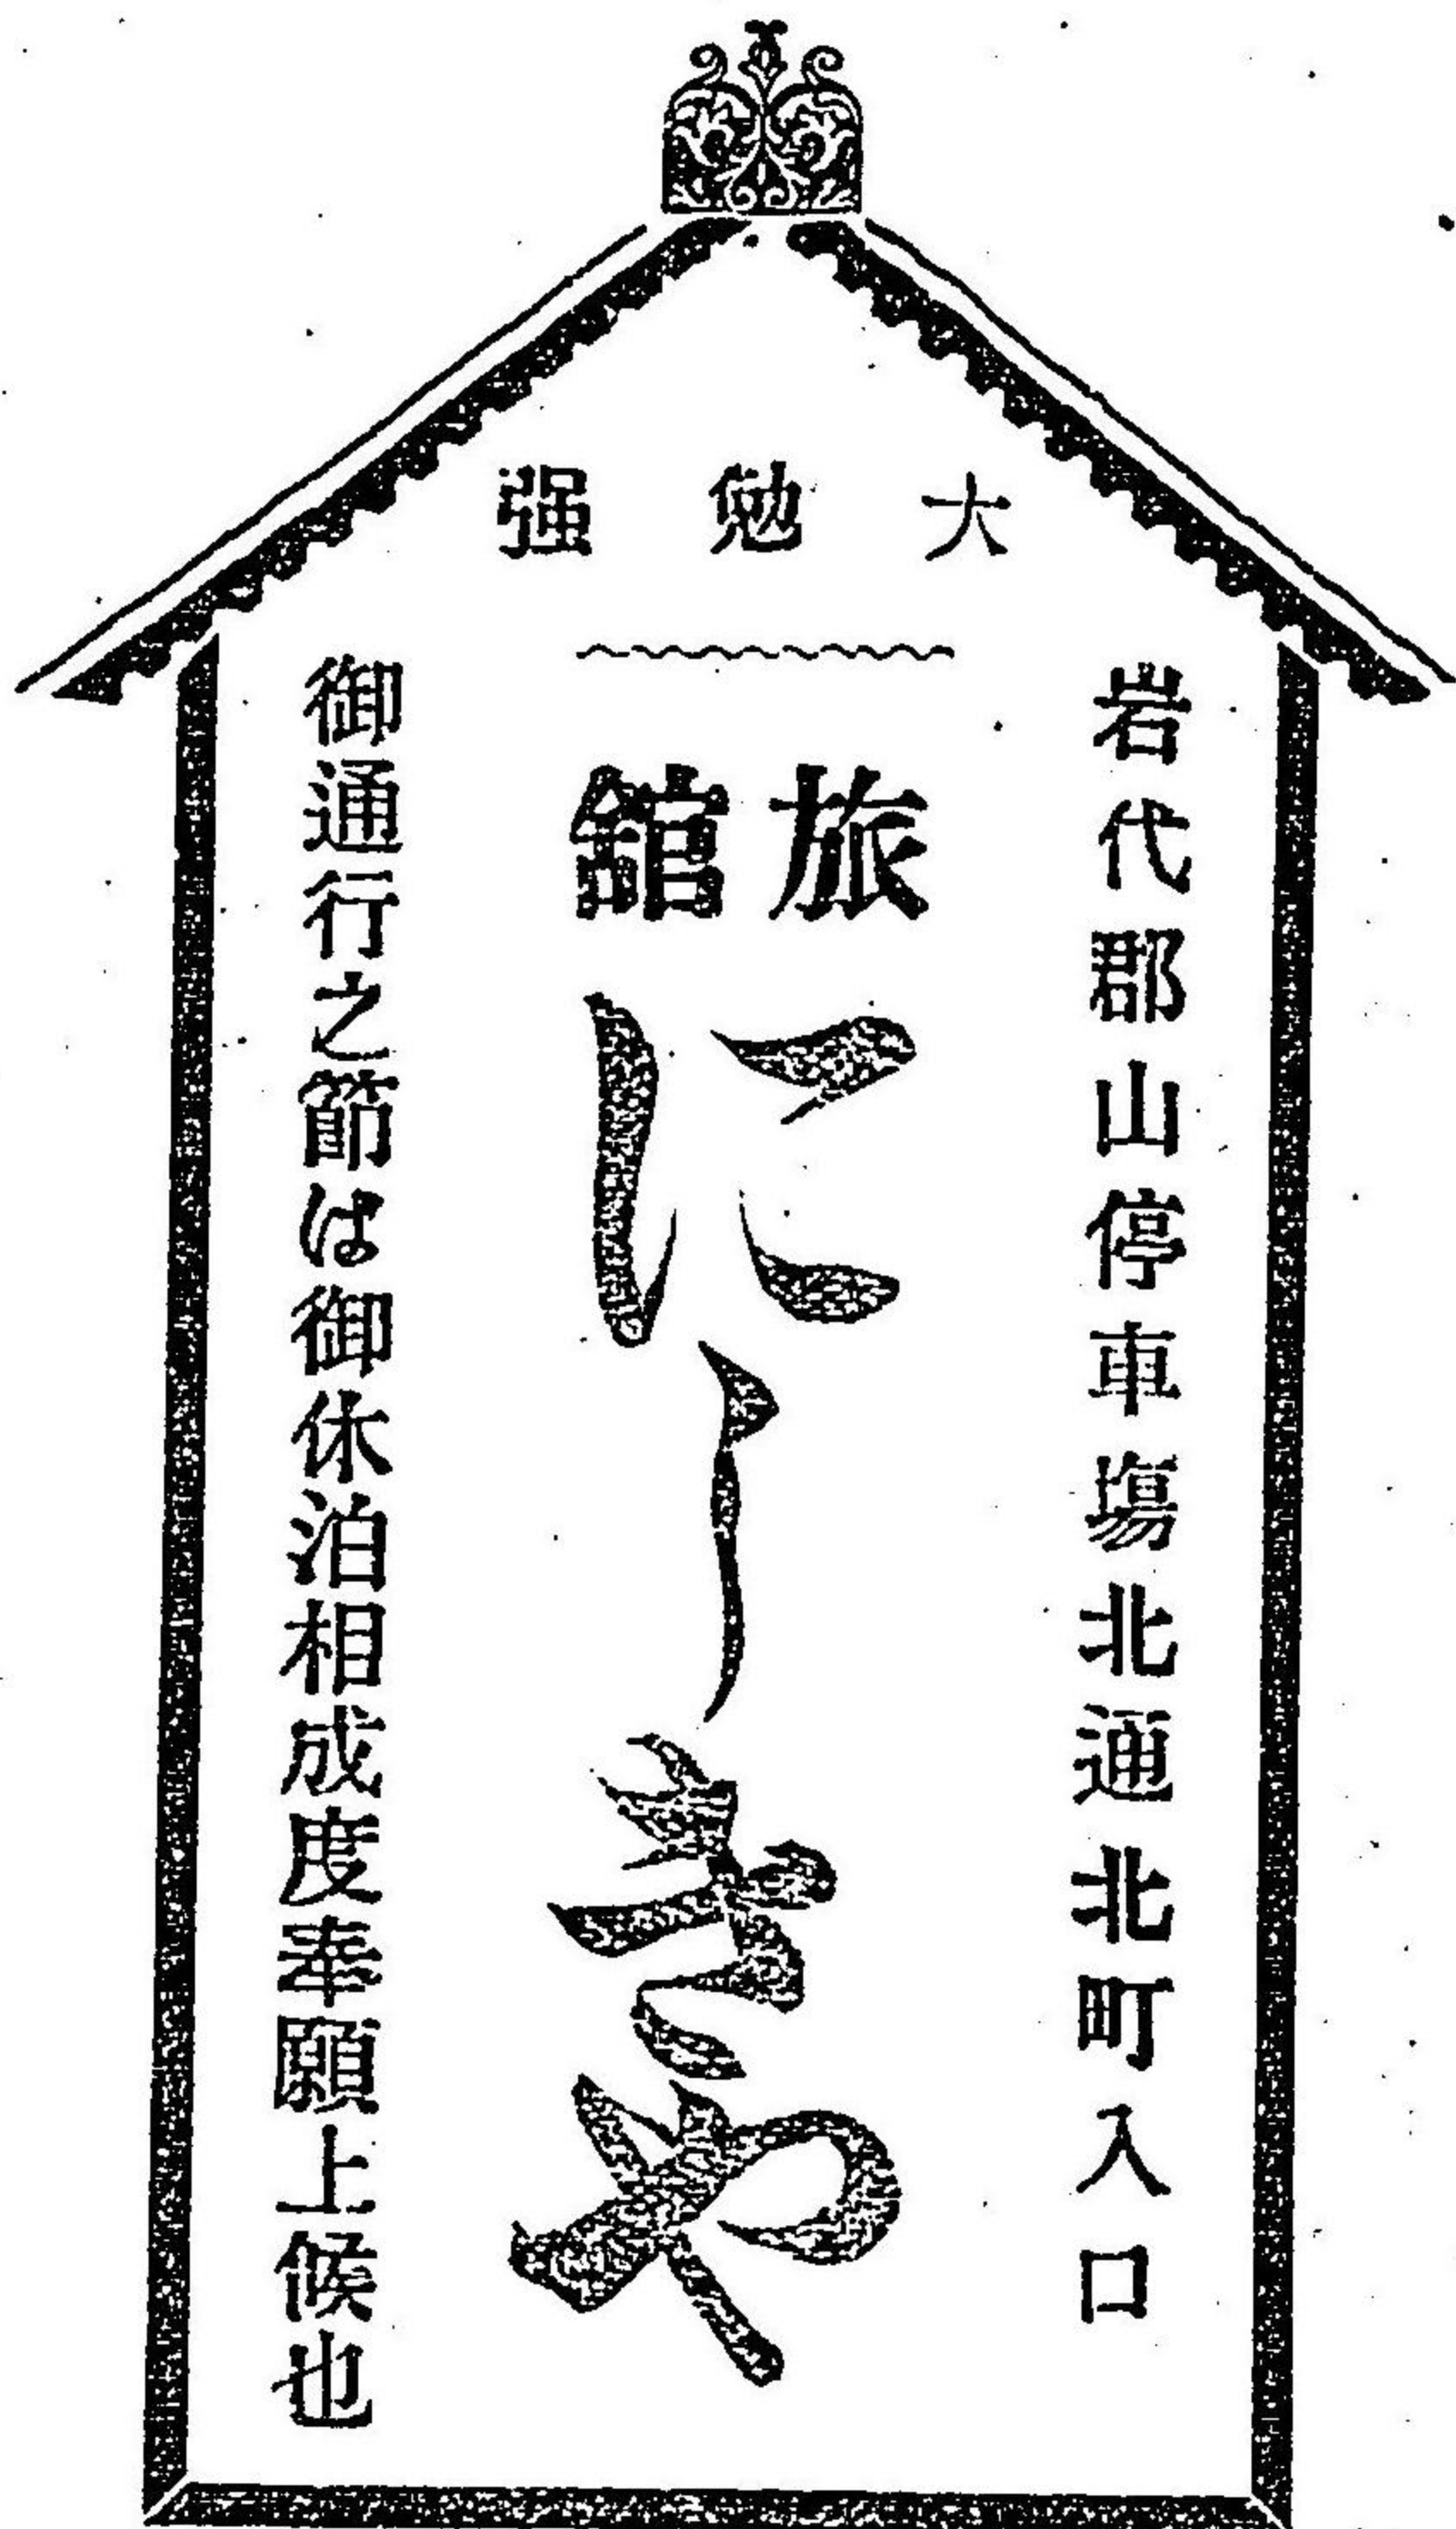 大勉强
岩代郡山停車塲北通北町入口
旅舘
にしきや
御通行之節は御休泊相成度奉願上候也